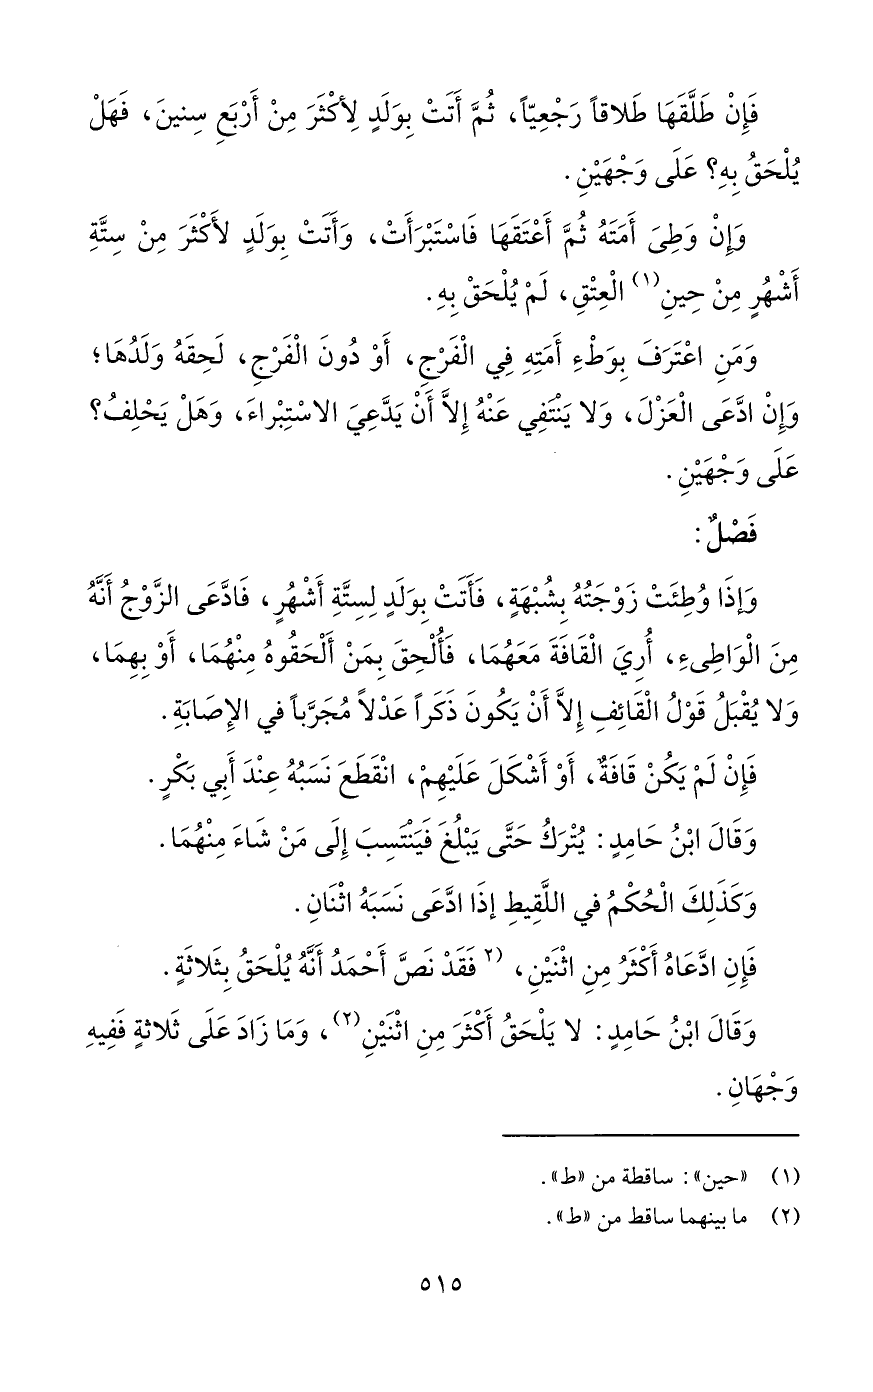 فَإِنْ طَلَّقَهَا طَلاقاً رَجْعِيّاً، ثُمَّ أَتَتْ بِوَلَدٍ لِأكْثَرَ مِنْ أَرْبَعِ سِنينَ، فَهَلْ
يُلْحَقُ بِهِ؟ عَلَى وَجْهَيْنِ.
وَإِنْ وَطِئَ أَمَتَهُ ثُمَّ أَعْتَقَهَا فَاسْتَبْرَأَتْ، وَأَتَتْ بِوَلَدٍ لأَكْثَرَ مِنْ سِتَّةِ
أَشْهُرٍ مِنْ حِينِ(١) الْعِتْقِ، لَمْ يُلْحَقْ بِهِ.
وَمَنِ اعْتَرَفَ بِوَطْءِ أَمَتِهِ فِي الْفَرْجِ، أَوْ دُونَ الْفَرْجِ، لَحِقَهُ وَلَدُهَا؛
وَإِنْ ادَّعَى الْعَزْلَ، وَلا يَنْتَفِي عَنْهُ إِلاَّ أَنْ يَدَّعِيَ الاسْتِبْراءَ، وَهَلْ يَحْلِفُ؟
عَلَى وَجْهَيْنِ.
فَصْلٌ:
وَإِذَا وُطِئَتْ زَوْجَتُهُ بِشُبْهَةٍ، فَأَتَتْ بِوَلَدٍ لِسِتَّةِ أَشْهُرٍ، فَادَّعَى الزَّوْجُ أَنَّهُ
مِنَ الْوَاطِىءِ، أُرِيَ الْقَافَةَ مَعَهُمَا، فَأُلْحِقَ بِمَنْ أَلْحَقُوهُ مِنْهُمَا، أَوْ بِهِمَا،
وَلا يُقْبَلُ قَوْلُ الْقَائِفِ إِلاَّ أَنْ يَكُونَ ذَكَراً عَدْلاً مُجَرَّباً في الإِصَابَةِ.
فَإِنْ لَمْ يَكُنْ قَافَةٌ، أَوْ أَشْكَلَ عَلَيْهِمْ، انْقَطَعَ نَسَبُهُ عِنْدَ أَبي بَكْرٍ.
وَقَالَ ابْنُ حَامِدٍ: يُتْرَكُ حَتَّى يَبْلُغَ فَيَنْتَسِبَ إِلَى مَنْ شَاءَ مِنْهُمَا.
وَكَذَلِكَ الْحُكْمُ في اللَّقِيطِ إِذَا ادَّعَى نَسَبَهُ اثْنَانِ.
فَإِنِ ادَّعَاهُ أَكْثَرُ مِنِ اثْنَيْنِ، (٢ فَقَدْ نَصَّ أَحْمَدُ أَنَّهُ يُلْحَقُ بِثَلاثَةٍ.
وَقَالَ ابْنُ حَامِدٍ: لا يَلْحَقُ أَكْثَرَ مِنِ اثْنَيْنِ(٢)، وَمَا زَادَ عَلَى ثَلاثةٍ فَفِيهِ
وَجْهَانِ.
(١) «حين»: ساقطة من «ط».
(٢) ما بينهما ساقط من «ط».
٥١٥